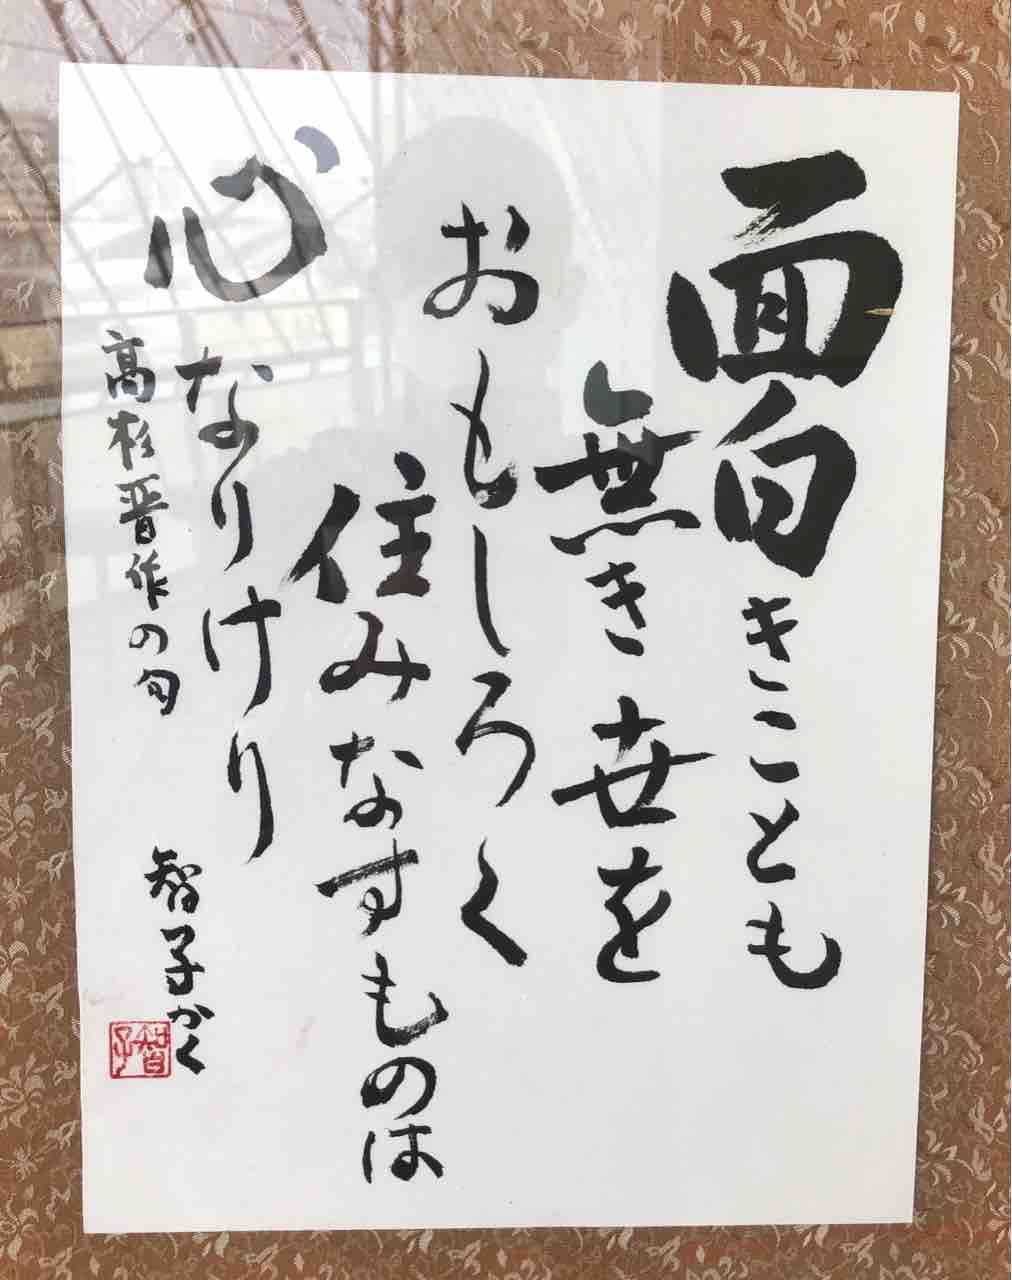 面白きことも
無き世を
おもしろく
住みなすものは
心なりけり
高杉晋作の句
智子かく
智子